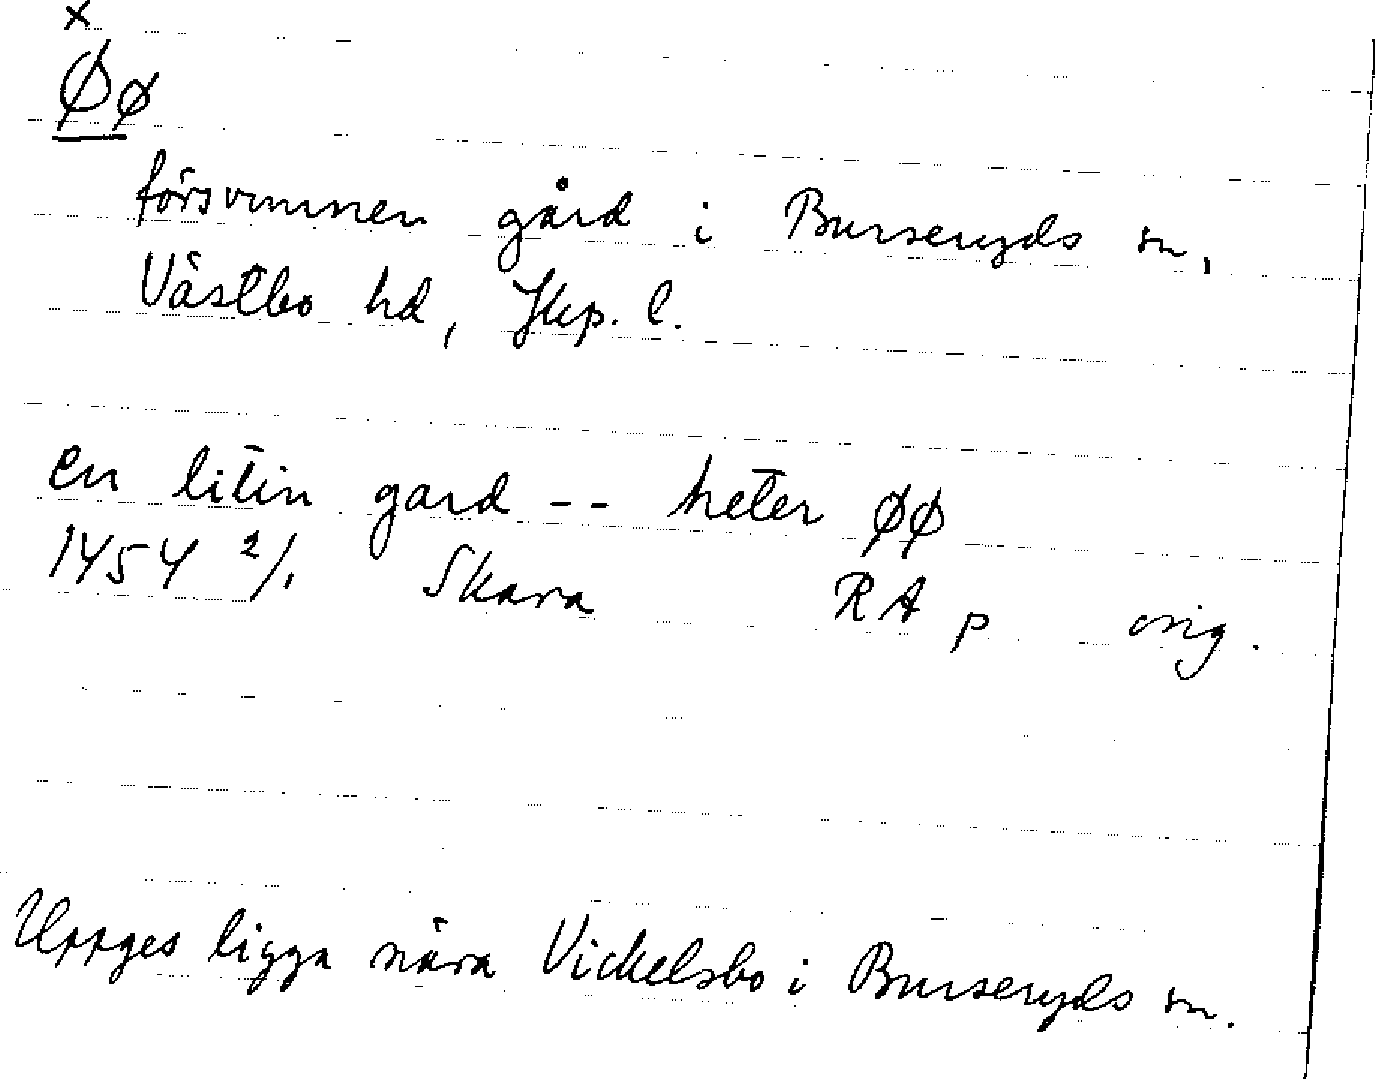 x
Øø
försvunnen gård i Burseryds sn,
Västbo hd, Jkp. l.
en litin gard -- heter øø
1454 2/1 Skara RA p orig.
Uppges ligga nära Vickelsbo i Burseryds sn.